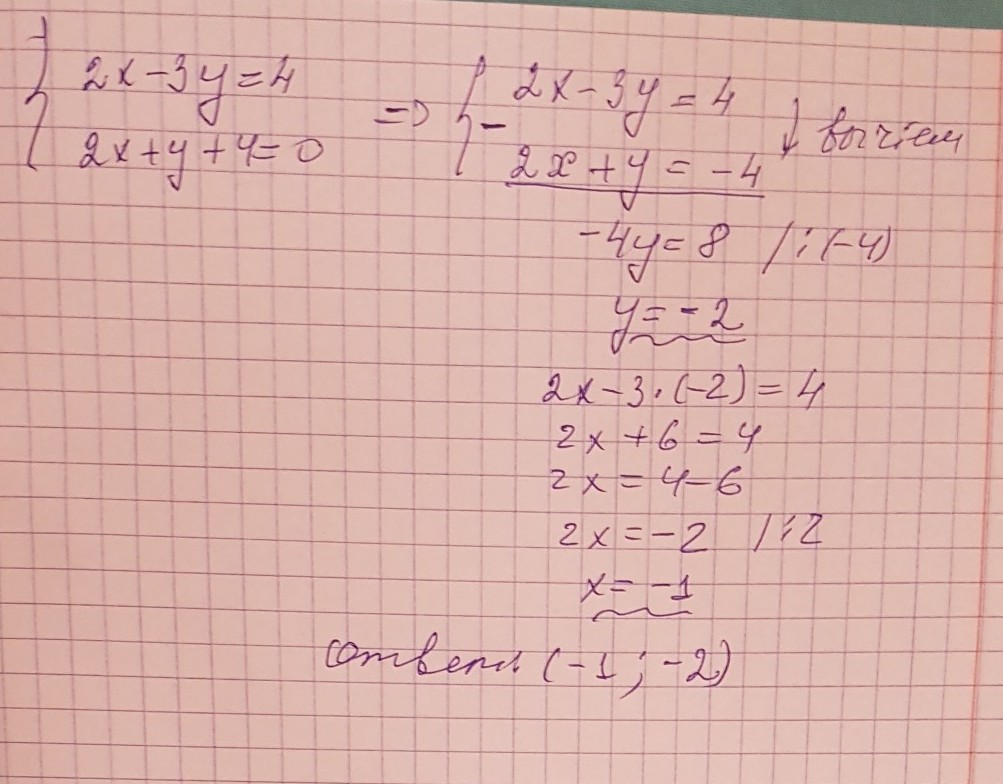 2x-3y=4
2x+y+4=0
=>
2x-3y=4
-
2x+y=-4
↓ вычтем
-4y=8 /:(-4)
y=-2
2x-3·(-2)=4
2x+6=4
2x=4-6
2x=-2 /:2
x=-1
ответ (-1;-2)